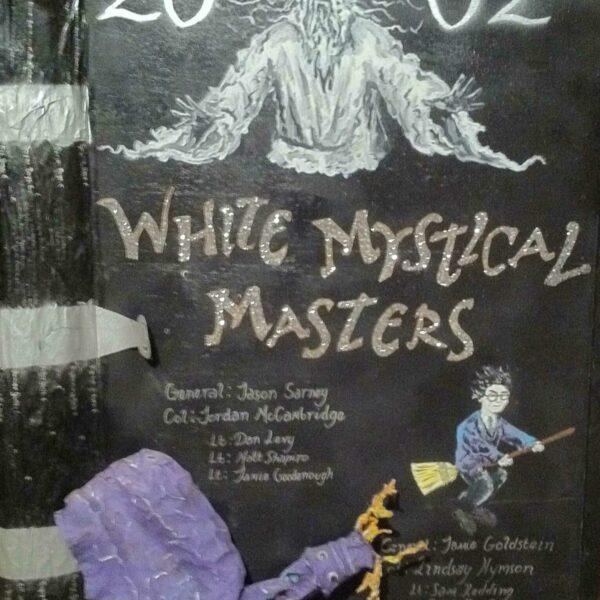 2002
WHITE MYSTICAL
MASTERS
General: Jason Sarney
Col: Jordan McCambridge
Lt: Dan Levy
Lt: Matt Shapiro
Lt: Jamie Goodenough
General: Jamie Goldstein
Lindsay Nymson
Lt: Sam Redding